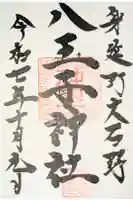 身延町大石野
八王子神社
令和七年十月九日